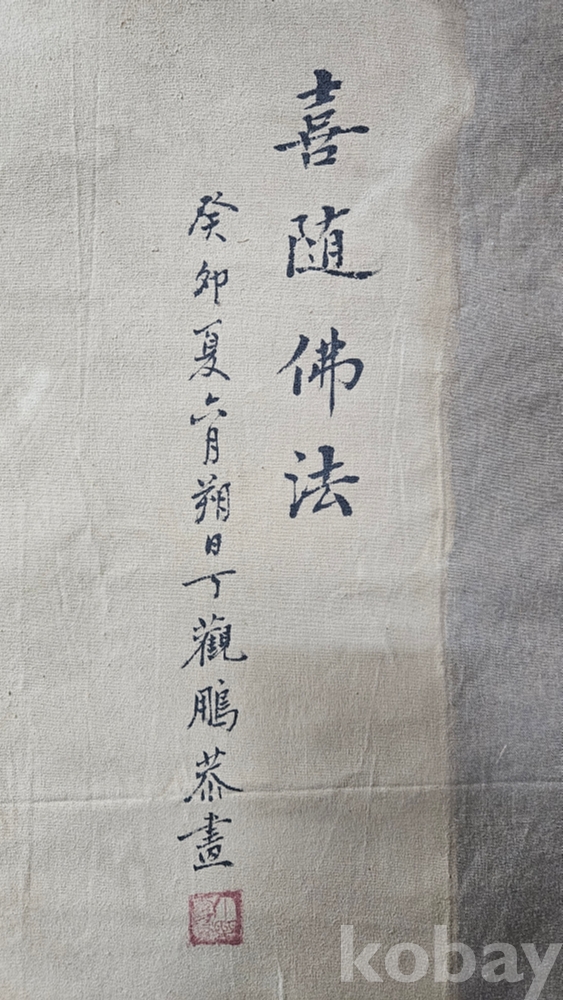 喜随佛法
癸卯夏六月朔日丁觀鵬恭畫
kobay